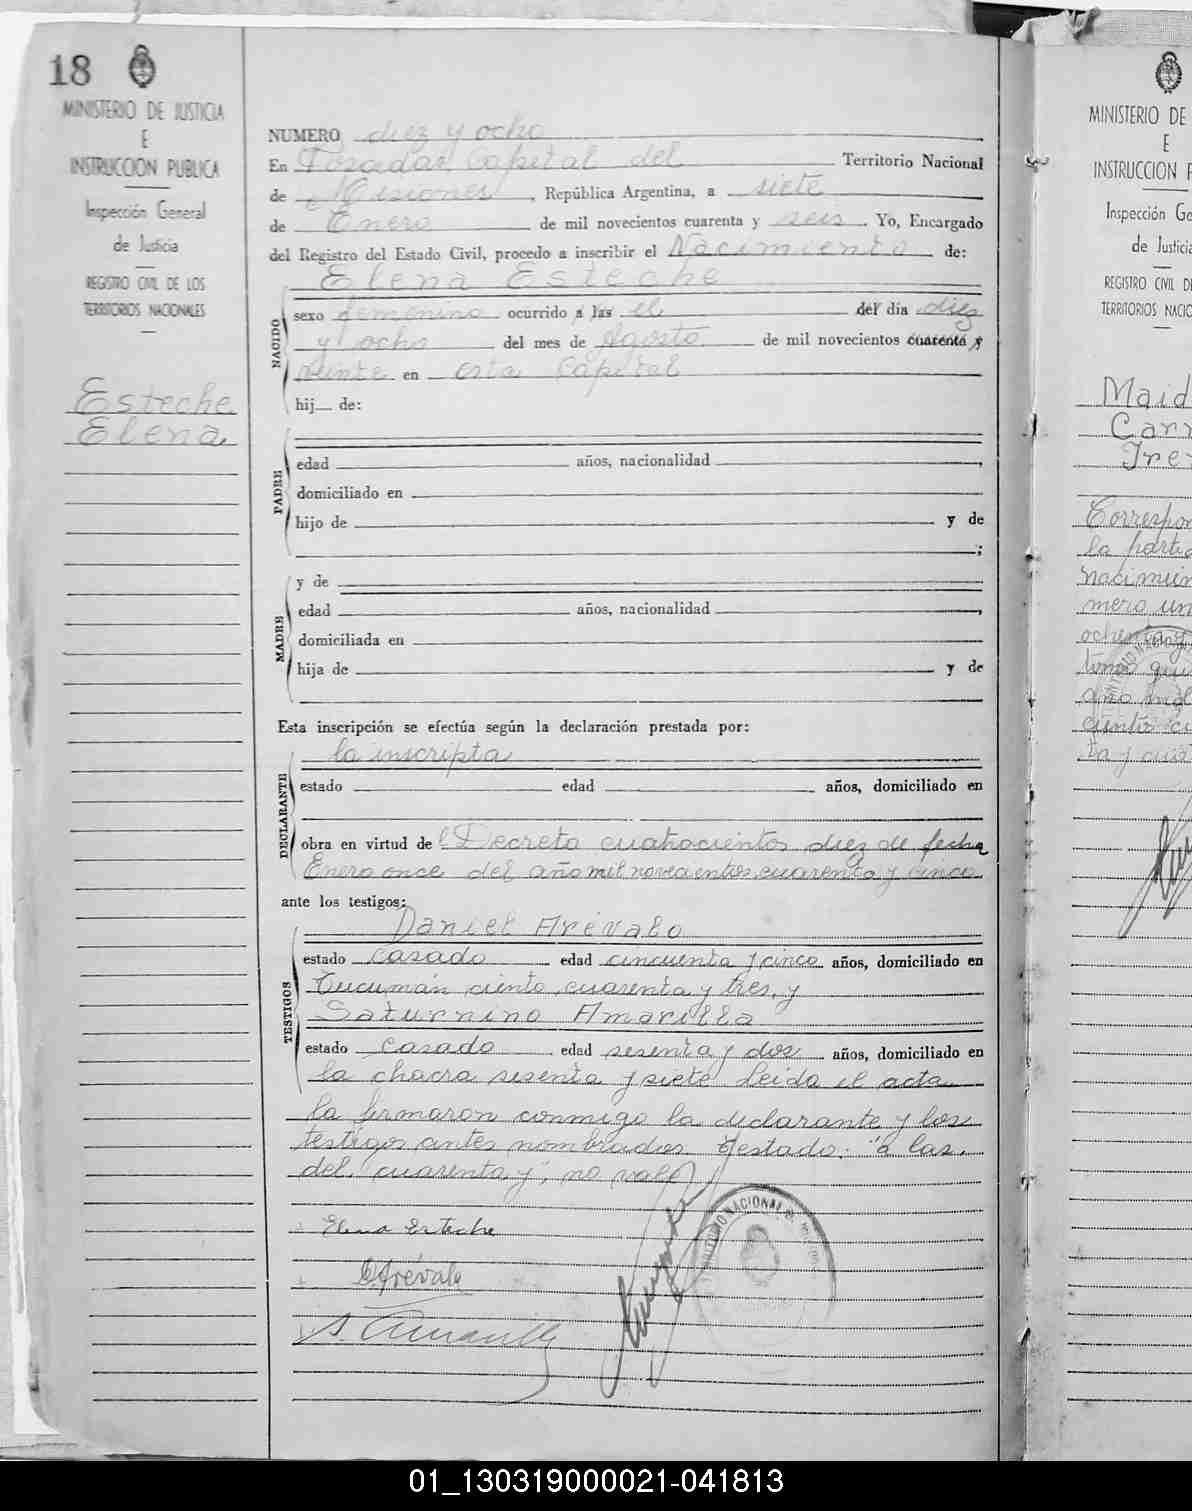 18
MINISTERIO DE JUSTICIA
E
INSTRUCCION PUBLICA
Inspección General
de Justicia
REGISTRO CIVIL DE LOS
TERRITORIOS NACIONALES
Esteche
Elena
NUMERO diez y ocho
En Posadas Capital del Territorio Nacional
de Misiones, República Argentina, a siete
de Enero de mil novecientos cuarenta y seis. Yo, Encargado
del Registro del Estado Civil, procedo a inscribir el Nacimiento de:
Elena Esteche
NACIDO
sexo femenino ocurrido a las el del día diez
y ocho del mes de Agosto de mil novecientos cuarenta y
veinte en esta Capital
hij de:
PADRE
edad años, nacionalidad ,
domiciliado en
hijo de y de
;
MADRE
y de
edad años, nacionalidad ,
domiciliada en
hija de y de
Esta inscripción se efectúa según la declaración prestada por:
DECLARANTE
la inscripta
estado edad años, domiciliado en
obra en virtud del Decreto cuatrocientos diez de fecha
Enero once del año mil novecientos cuarenta y cinco
ante los testigos:
TESTIGOS
Daniel Arévalo
estado casado edad cincuenta y cinco años, domiciliado en
Tucumán ciento cuarenta y tres, y
Saturnino Amarilla
estado casado edad sesenta y dos años, domiciliado en
la chacra sesenta y siete. Leida el acta
la firmaron conmigo la declarante y los
testigos antes nombrados. Testado: "a las.
del, cuarenta y", no vale
Elena Esteche
D. Arévalo
S. Amarilla
MINISTERIO DE
E
INSTRUCCION P
Inspección Ge
de Justicia
REGISTRO CIVIL DE
TERRITORIOS NACIO
Maid
Carr
Tre
Correspon
la partid
nacimien
mero un
ochenta y
tomo qui
año mil
ta y cua
01_130319000021-041813